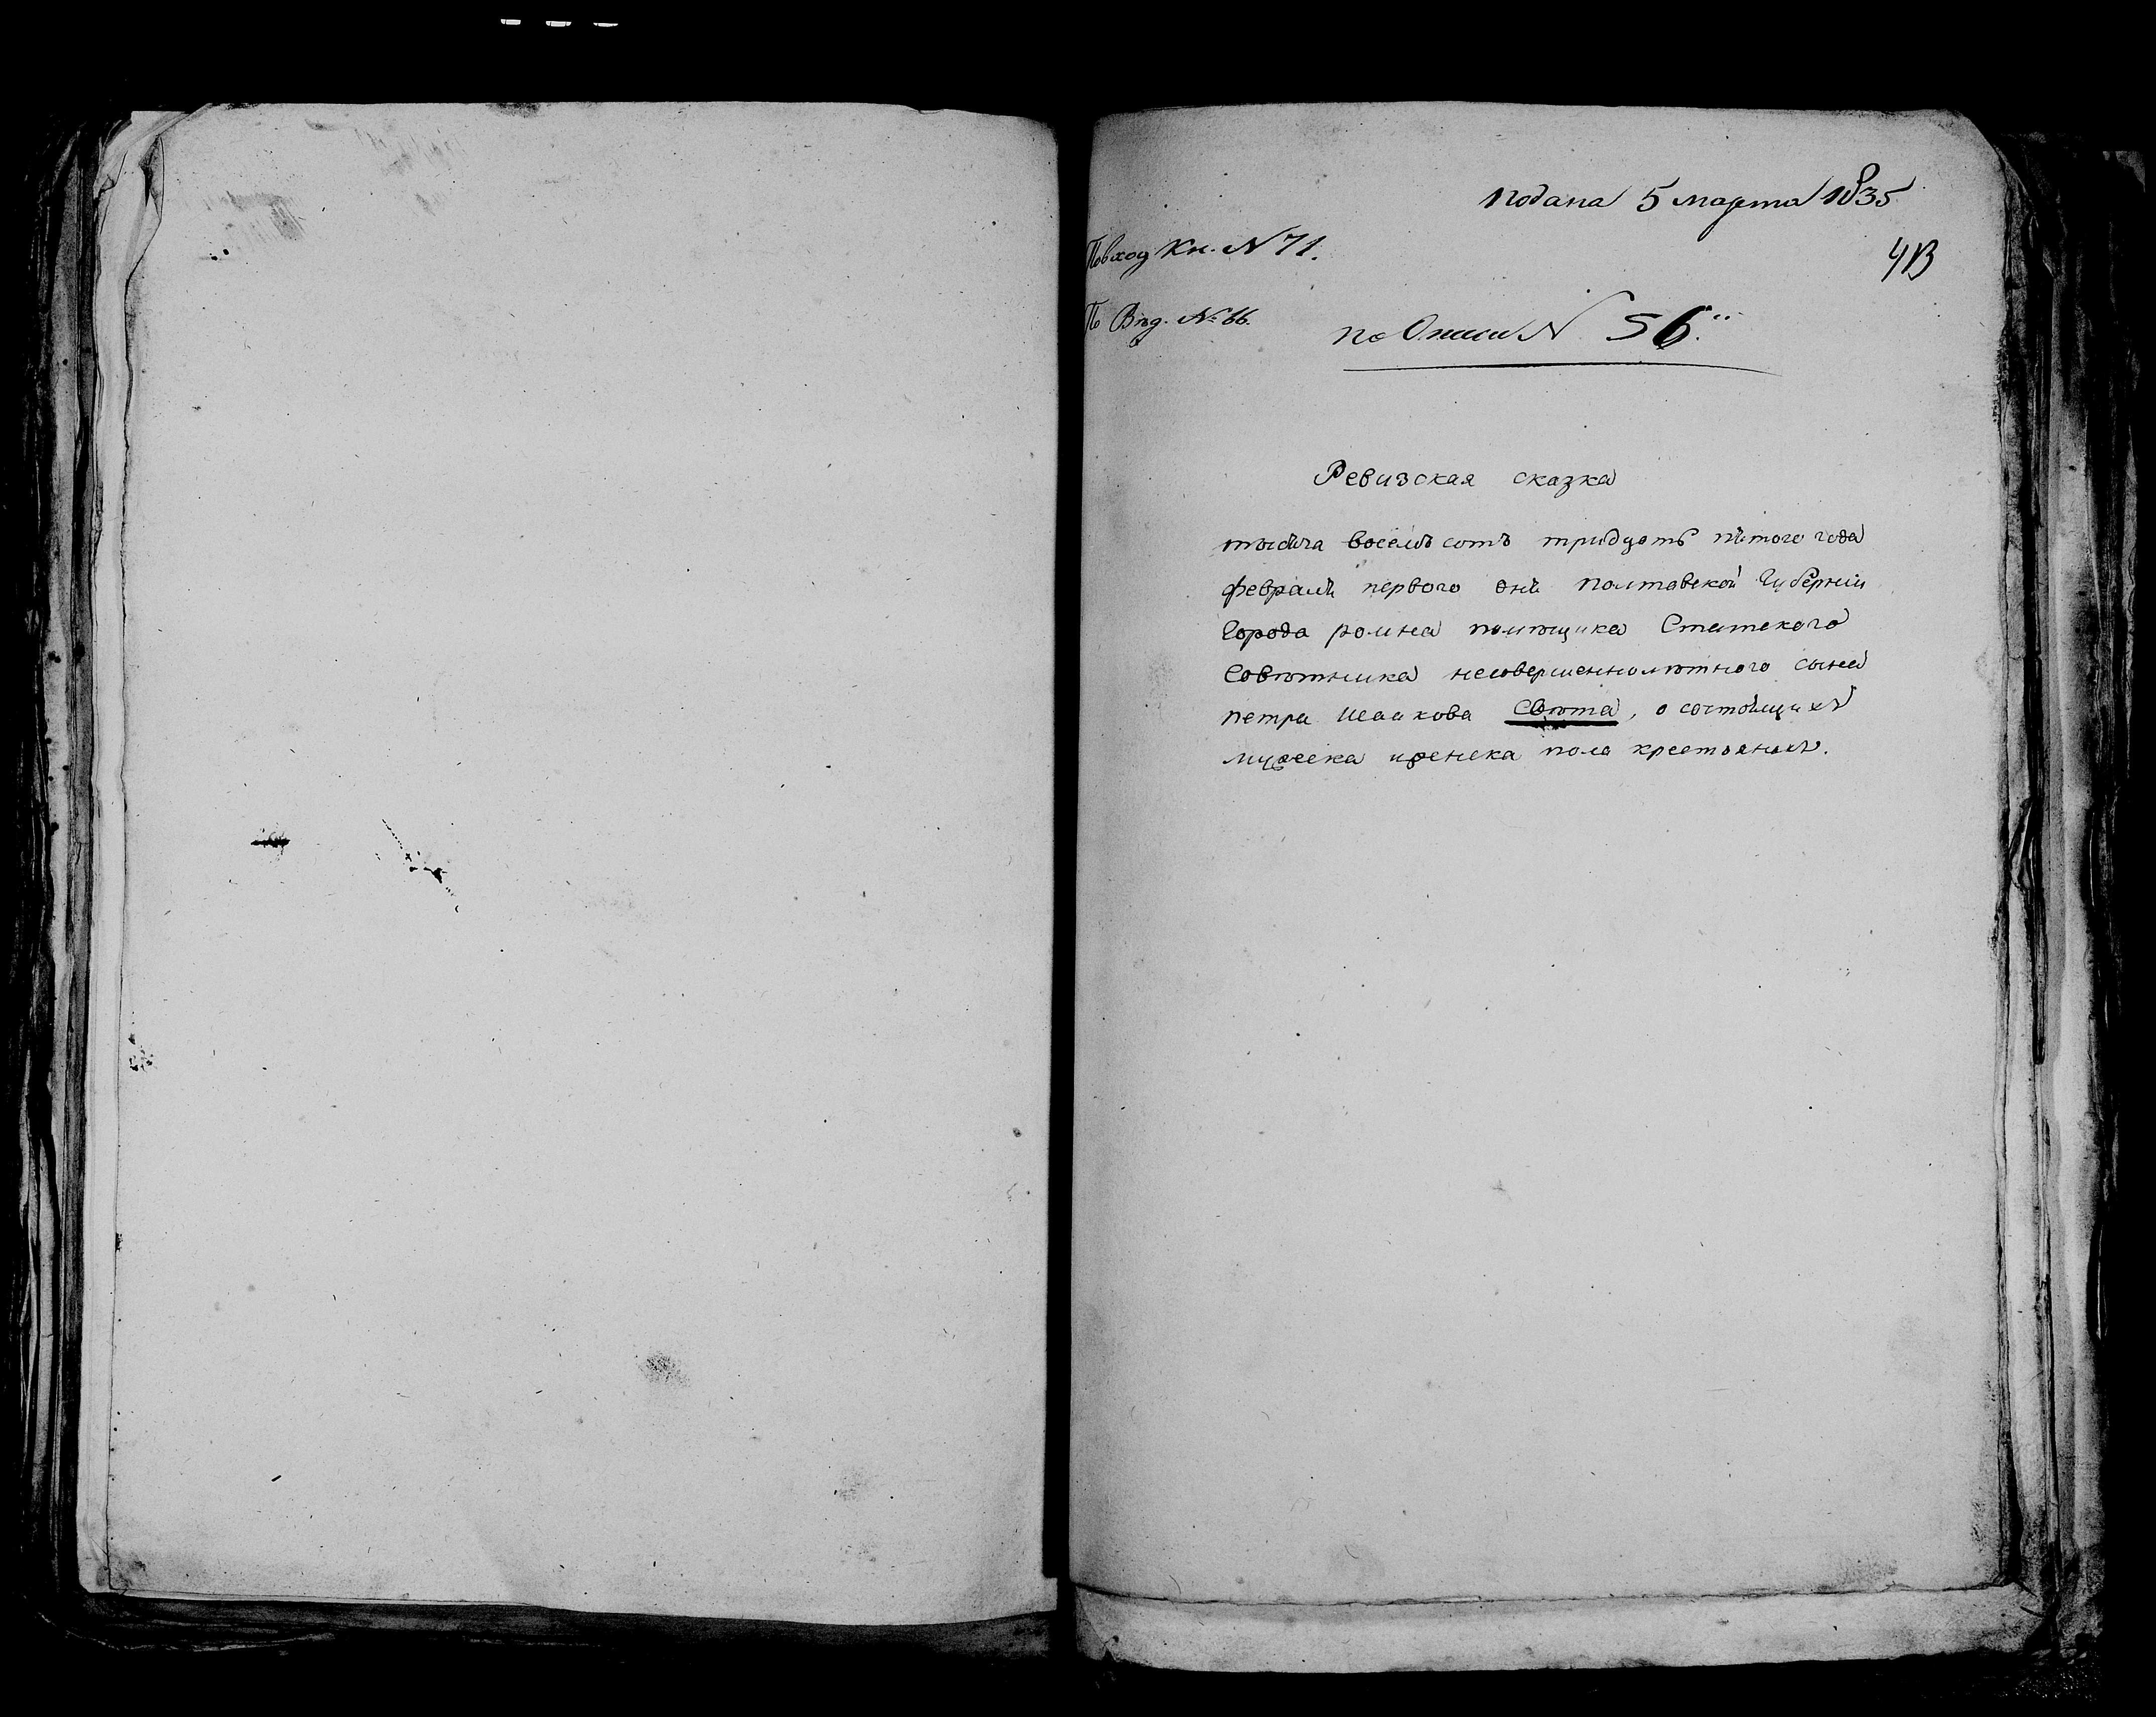 подана 5 марта 1835
По вход Кн. N 71.
413
По Вѣд. № 66.
по Описи N 56.
Ревизская сказка
тысяча восемь сотъ тридцать пятого года
февраля первого дня полтавской Губернии
Города ромна помѣщика Статского
Совѣтника несовершеннолѣтного сына
петра Исакова Свѣта, о состоящихъ
мужеска иженска пола крестьянахъ.